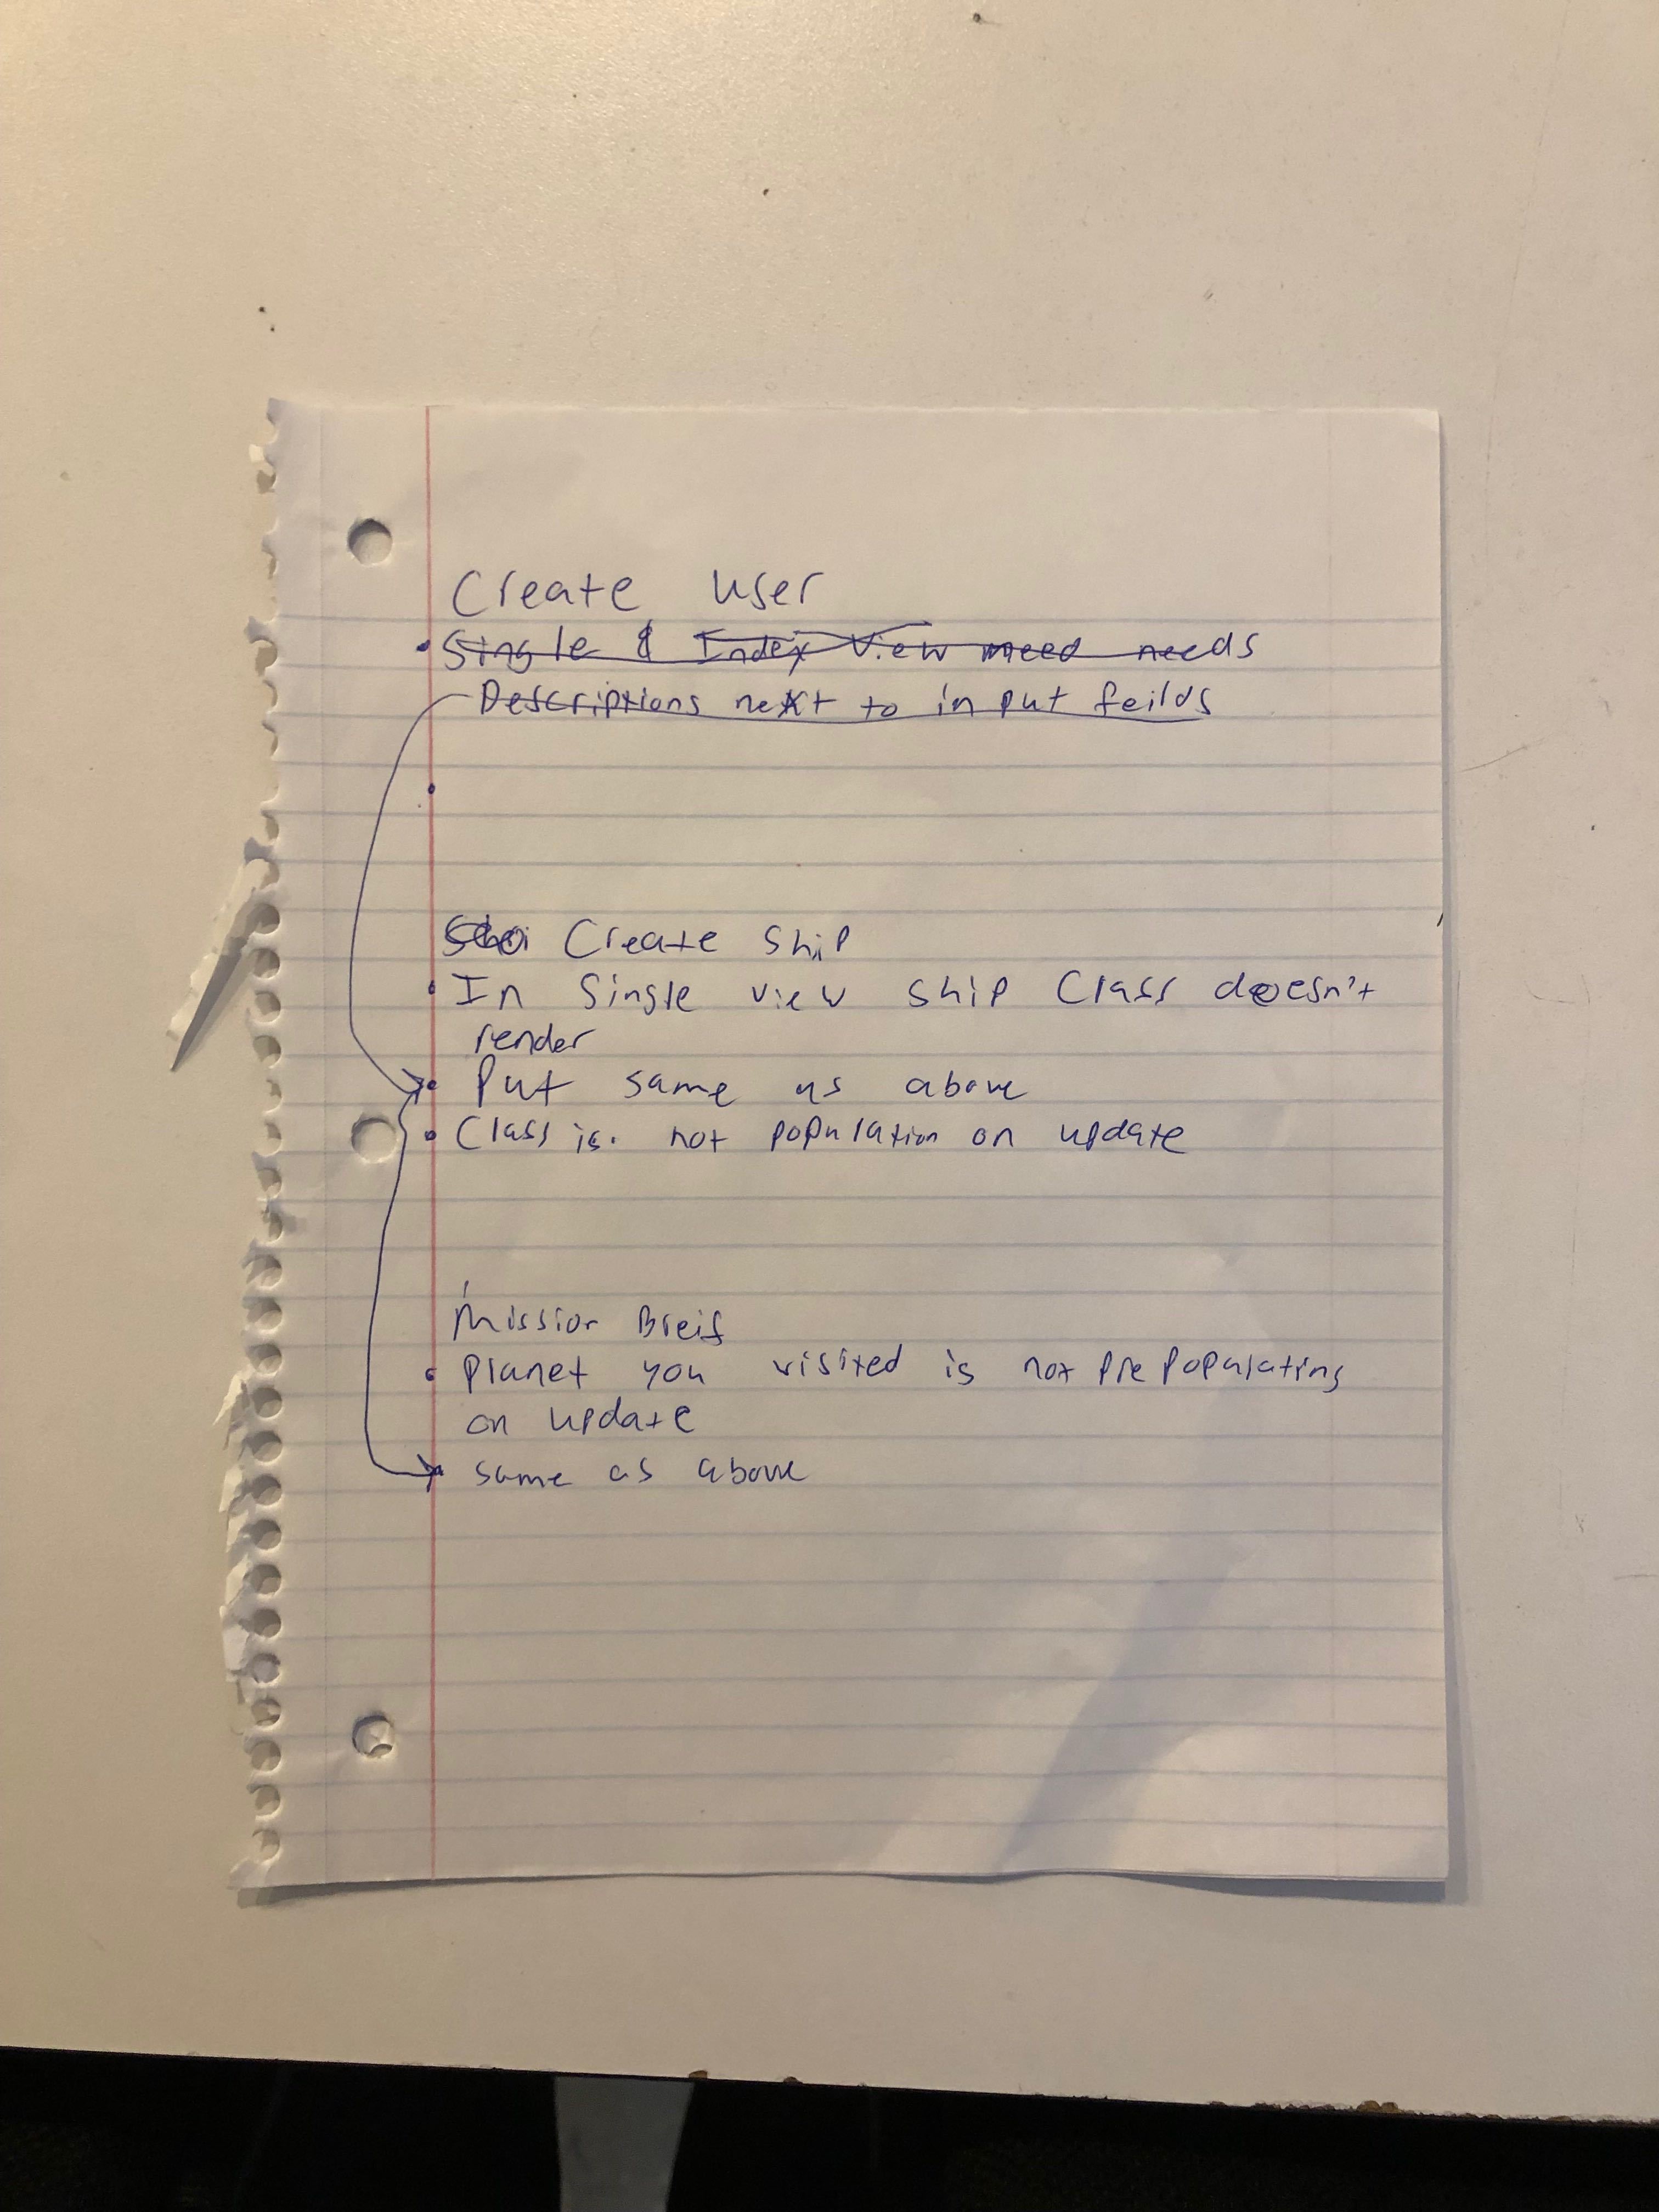 Create User
Single & Index View need needs
Descriptions next to input feilds
Create Ship
In Single view ship Class doesn't
render
Put same as above
Class is. not population on update
Mission Breif
Planet you visited is not pre populating
on update
same as above